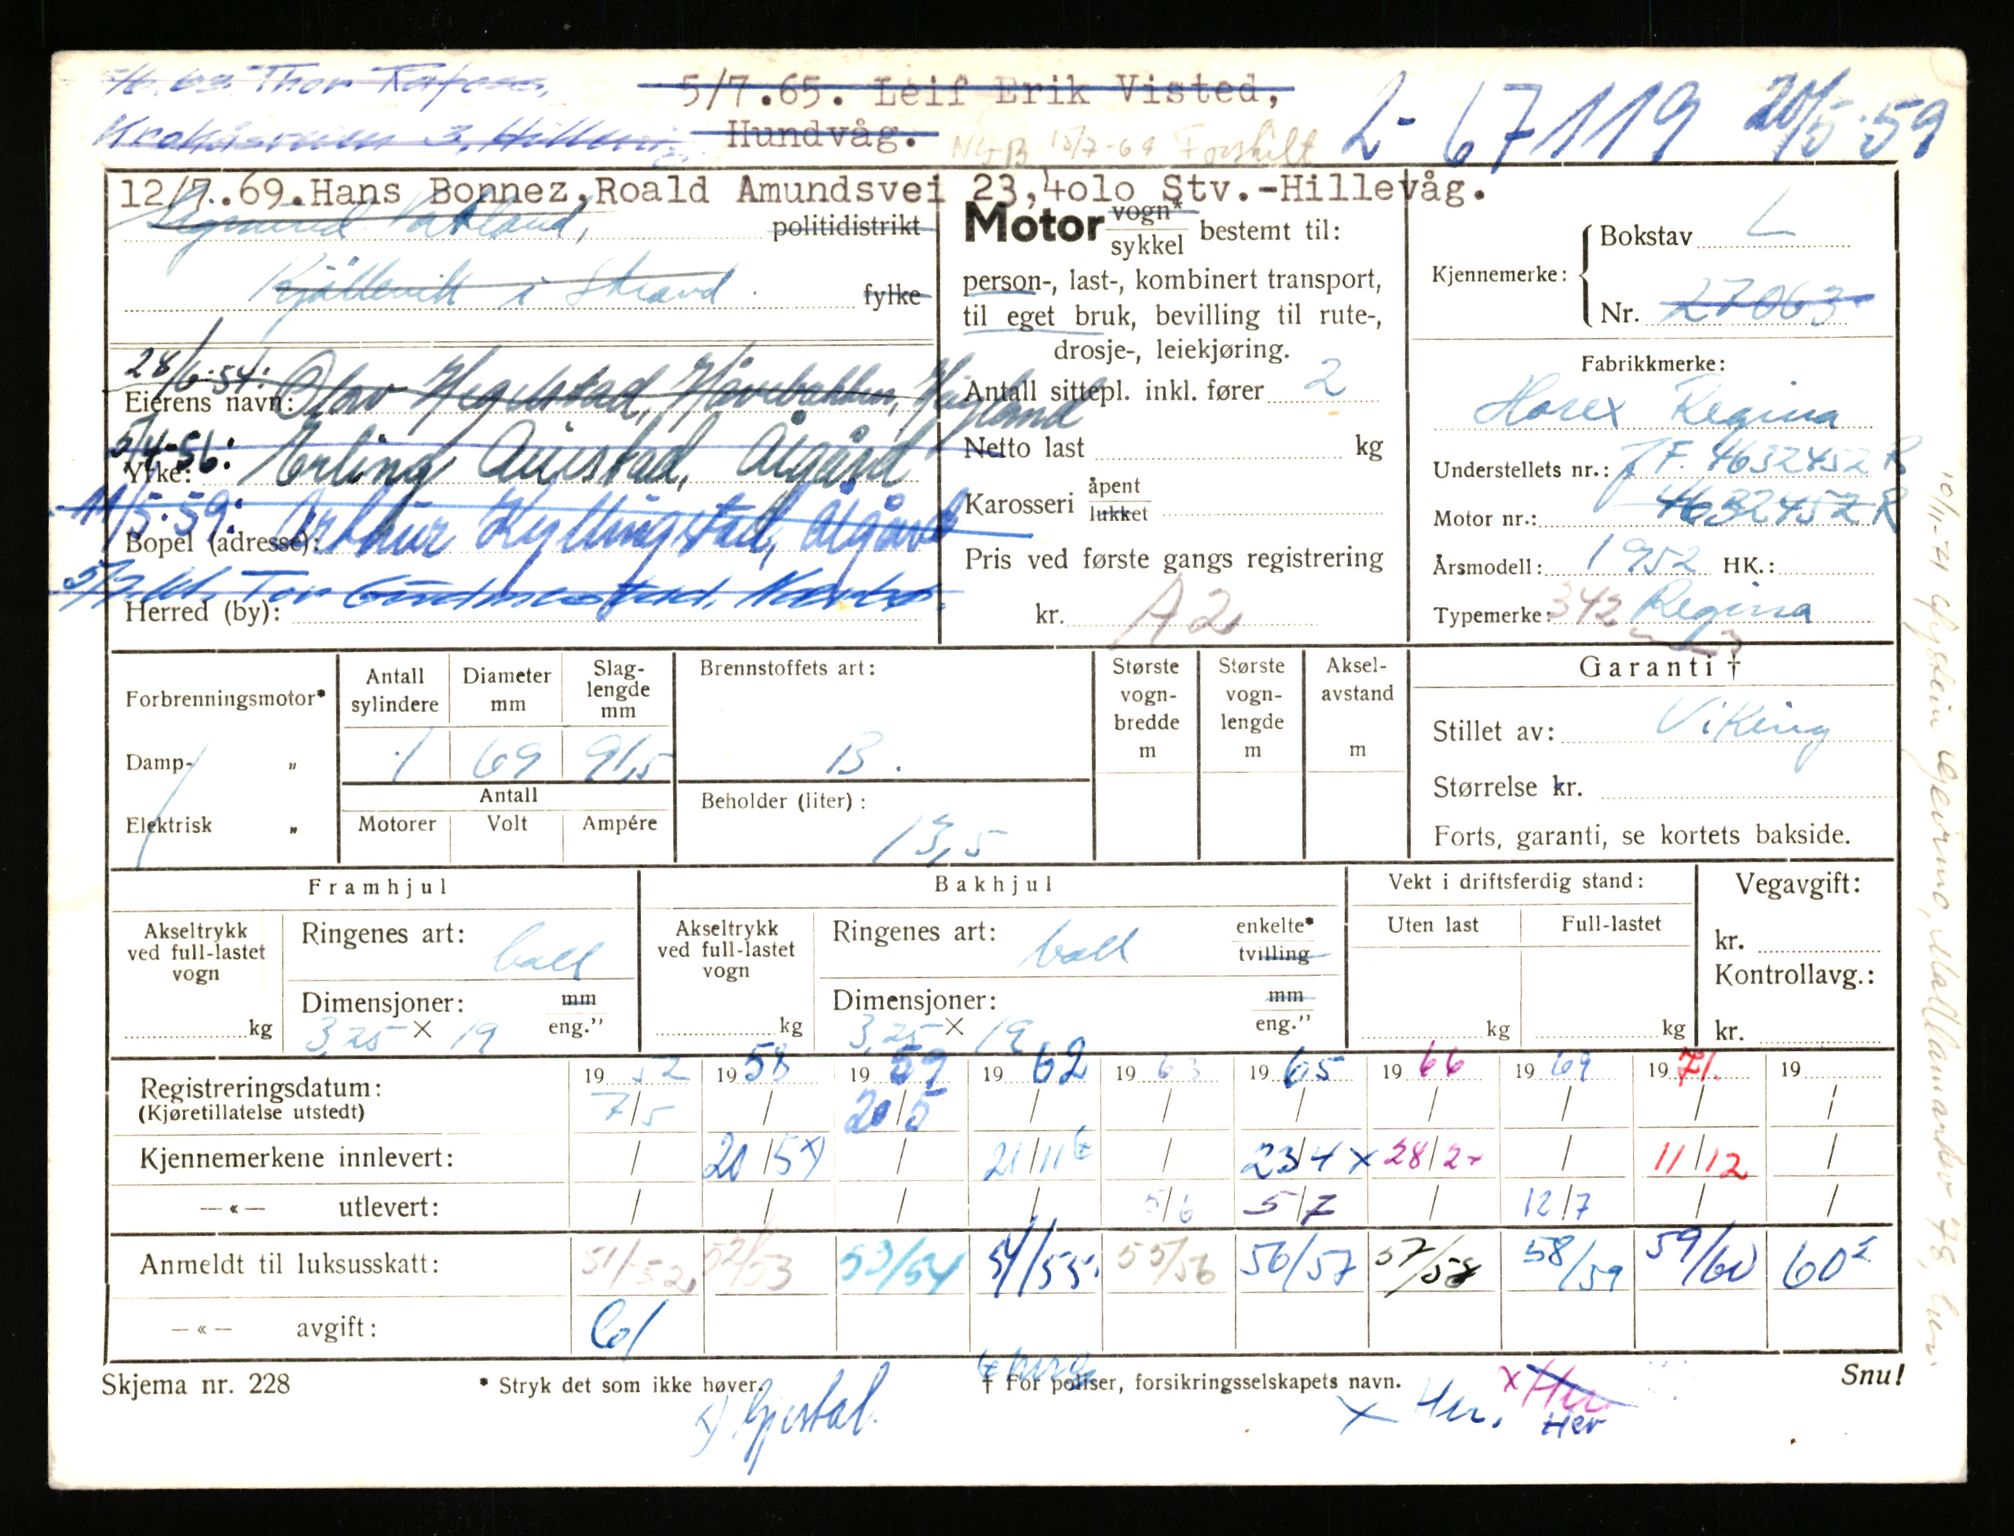 5/6.63. Thor
5/7.65. Leif Erik Visted,
Hundvåg.
L-67119 20/5-59
15/7-69
12/7.69.Hans Bonnez,Roald Amundsvei 23,4olo Stv.-Hillevåg.
Sigmund
politidistrikt
i Strand.
fylke
28/6-54:
Olav Hegelstad,
Eierens navn:
5/4-56: Erling Auestad, Ålgård
Yrke:
11/5-59: Arthur Kyllingstad, Ålgård
Bopel (adresse):
Tor
Herred (by):
Motor vogn*
sykkel
bestemt til:
person-, last-, kombinert transport,
til eget bruk, bevilling til rute-,
drosje-, leiekjøring.
Antall sittepl. inkl. fører 2
Netto last kg
Karosseri åpent
lukket
Pris ved første gangs registrering
kr. A2
Kjennemerke: Bokstav L
Nr. 27063
Fabrikkmerke:
Horex Regina
Understellets nr.: F. 4632452 R
Motor nr.: 4632452 R
Årsmodell: 1952 HK.:
Typemerke: 342 Regina
Forbrenningsmotor*
Damp- „
Elektrisk „
Antall sylindere 1
Diameter mm 69
Slaglengde mm 91,5
Antall
Motorer Volt Ampére
Brennstoffets art:
B.
Beholder (liter):
13,5
Største vognbredde m
Største vognlengde m
Akselavstand m
Garanti †
Stillet av: Viking
Størrelse kr.
Forts, garanti, se kortets bakside.
Framhjul
Akseltrykk ved full-lastet vogn kg
Ringenes art: ball
Dimensjoner: mm
3,25 x 19 eng."
Bakhjul
Akseltrykk ved full-lastet vogn kg
Ringenes art: ball enkelte*
tvilling
Dimensjoner: mm
3,25 x 19 eng."
Vekt i driftsferdig stand:
Uten last Full-lastet
kg kg
Vegavgift:
kr.
Kontrollavg.:
kr.
Registreringsdatum: 19 52 19 58 19 59 19 62 19 63 19 65 19 66 19 69 19 71. 19
(Kjøretillatelse utstedt) 7/5 / 20/5 / / / / / / /
Kjennemerkene innlevert: / 20/5 x) / 21/11 / 23/4 x 28/2 x / 11/12 /
—«— utlevert: / / / / 5/6 5/7 / 12/7 / /
Anmeldt til luksusskatt: 51/52 52/53 53/54 54/55. 55/56 56/57 57/58 58/59 59/60 60
—«— avgift: 61
Skjema nr. 228
* Stryk det som ikke høver.
† For poliser, forsikringsselskapets navn.
Snu!
x) Gjestal.
x Her.
x Her
Her
10/11-71